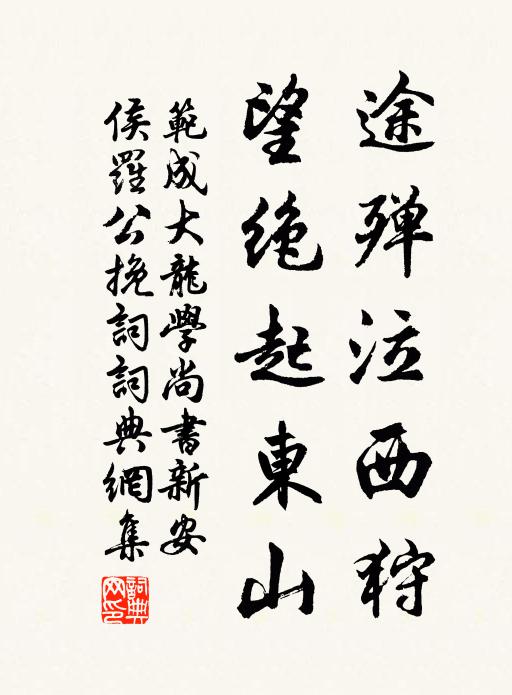 途殫泣西狩
望絶起東山
範成大龍學尚書新安
侯羅公挽詞詞典網集
詞典
网印